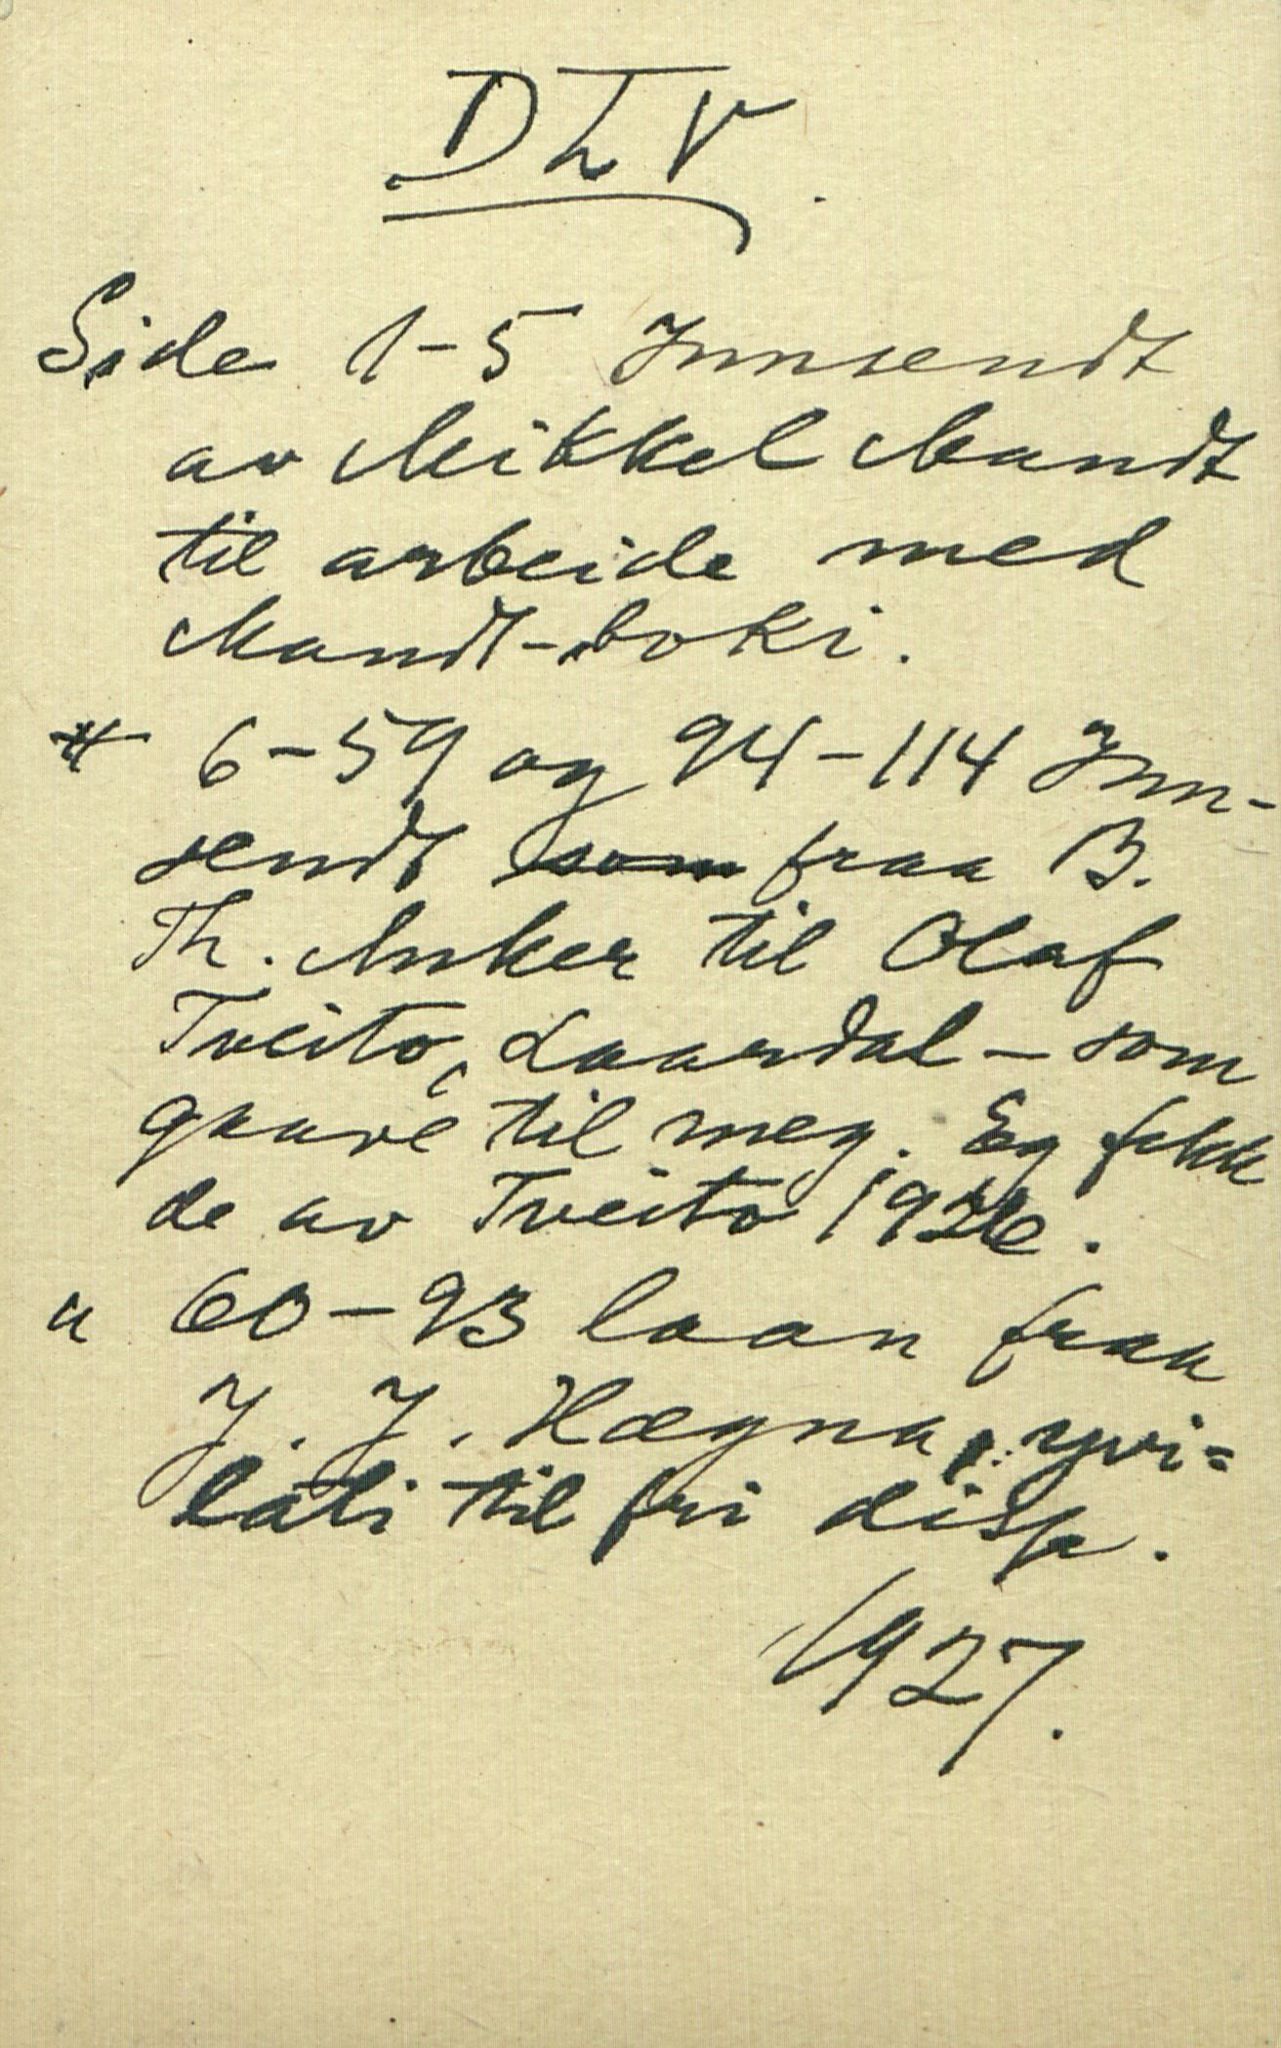 Side 1-5 Innsendt
av Mikkel Mandt
til arbeide med
Mandt-boki.
" 6-59 og 94-114 Inn-
sendt som fraa B.
Th. Anker til Olaf
Tveito, Laardal - som
gaave til meg. Eg fekk
de av Tveito 1926.
" 60-93 laan fraa
J. J. Hægna,
til fri disp.
1927.